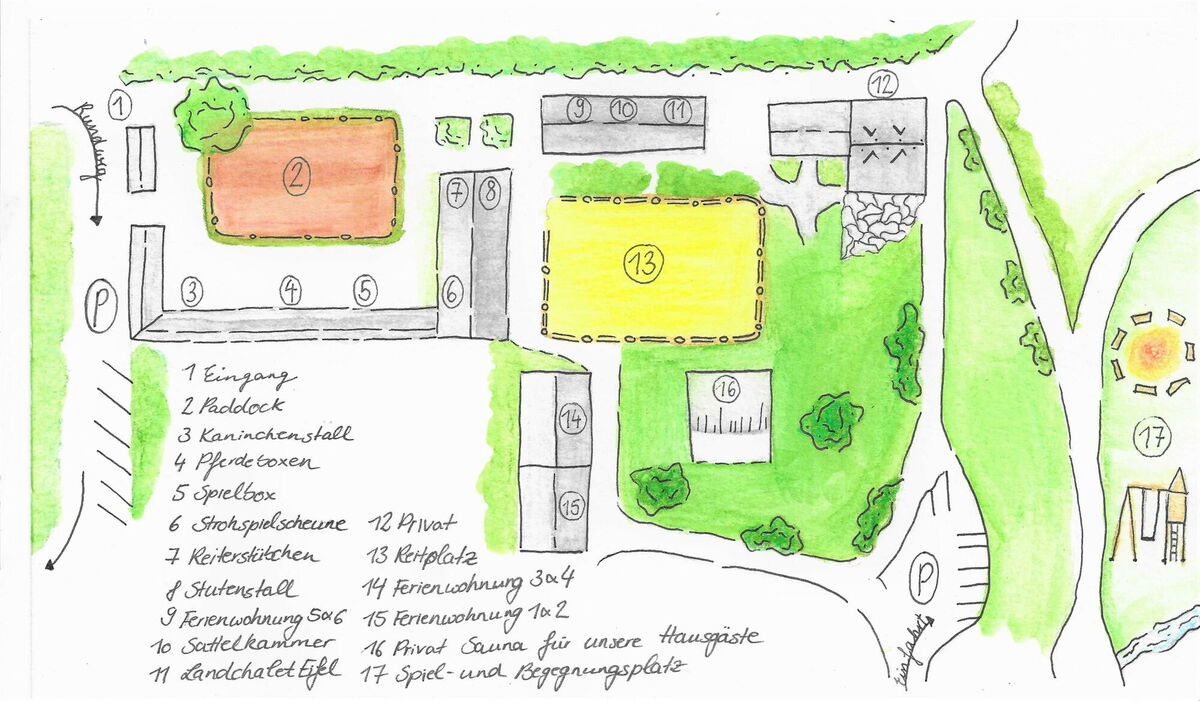 1
Rundweg
2
9 10 11
12
7 8
13
3 4 5 6
P
16
14
15
17
P
Einfahrt
1 Eingang
2 Paddock
3 Kaninchenstall
4 Pferdeboxen
5 Spielbox
6 Strohspielscheune
7 Reiterstübchen
8 Stutenstall
9 Ferienwohnung 5&6
10 Sattelkammer
11 Landchalet Eifel
12 Privat
13 Reitplatz
14 Ferienwohnung 3&4
15 Ferienwohnung 1&2
16 Privat Sauna für unsere Hausgäste
17 Spiel- und Begegnungsplatz